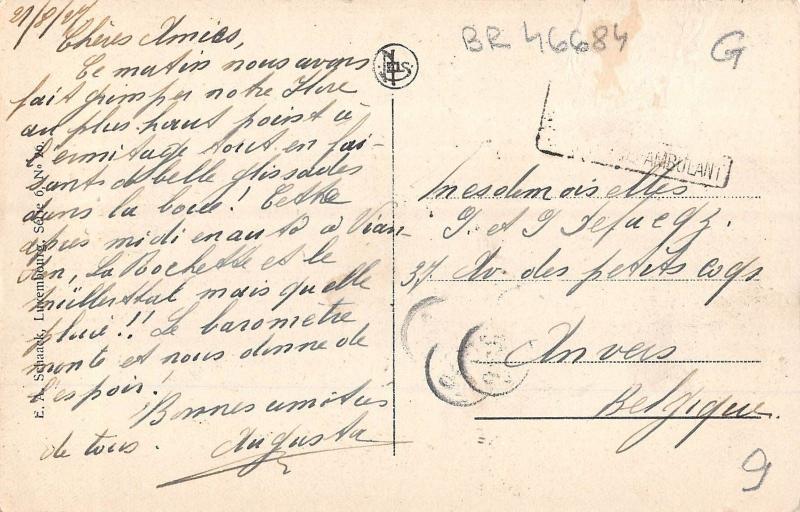 21/8/27
Chères Amies,
Ce matin nous avons
fait grimper notre
au plus haut point à
l'ermitage tout en fai-
sant de belle glissades
dans la boue! Cette
après midi en auto à Vian-
den, La Rochette et le
müllerttal mais quelle
pluie!! Le baromètre
monte et nous donne de
l'espoir!
Bonnes amitiés
de tous. Augusta
E. A. Schaack, Luxembourg, Série 6, No 20
NELS
BR 46684
G
AMBULANT
Mesdemoiselles
J. et J
37 Av. des petits coqs
Anvers
Belgique.
9